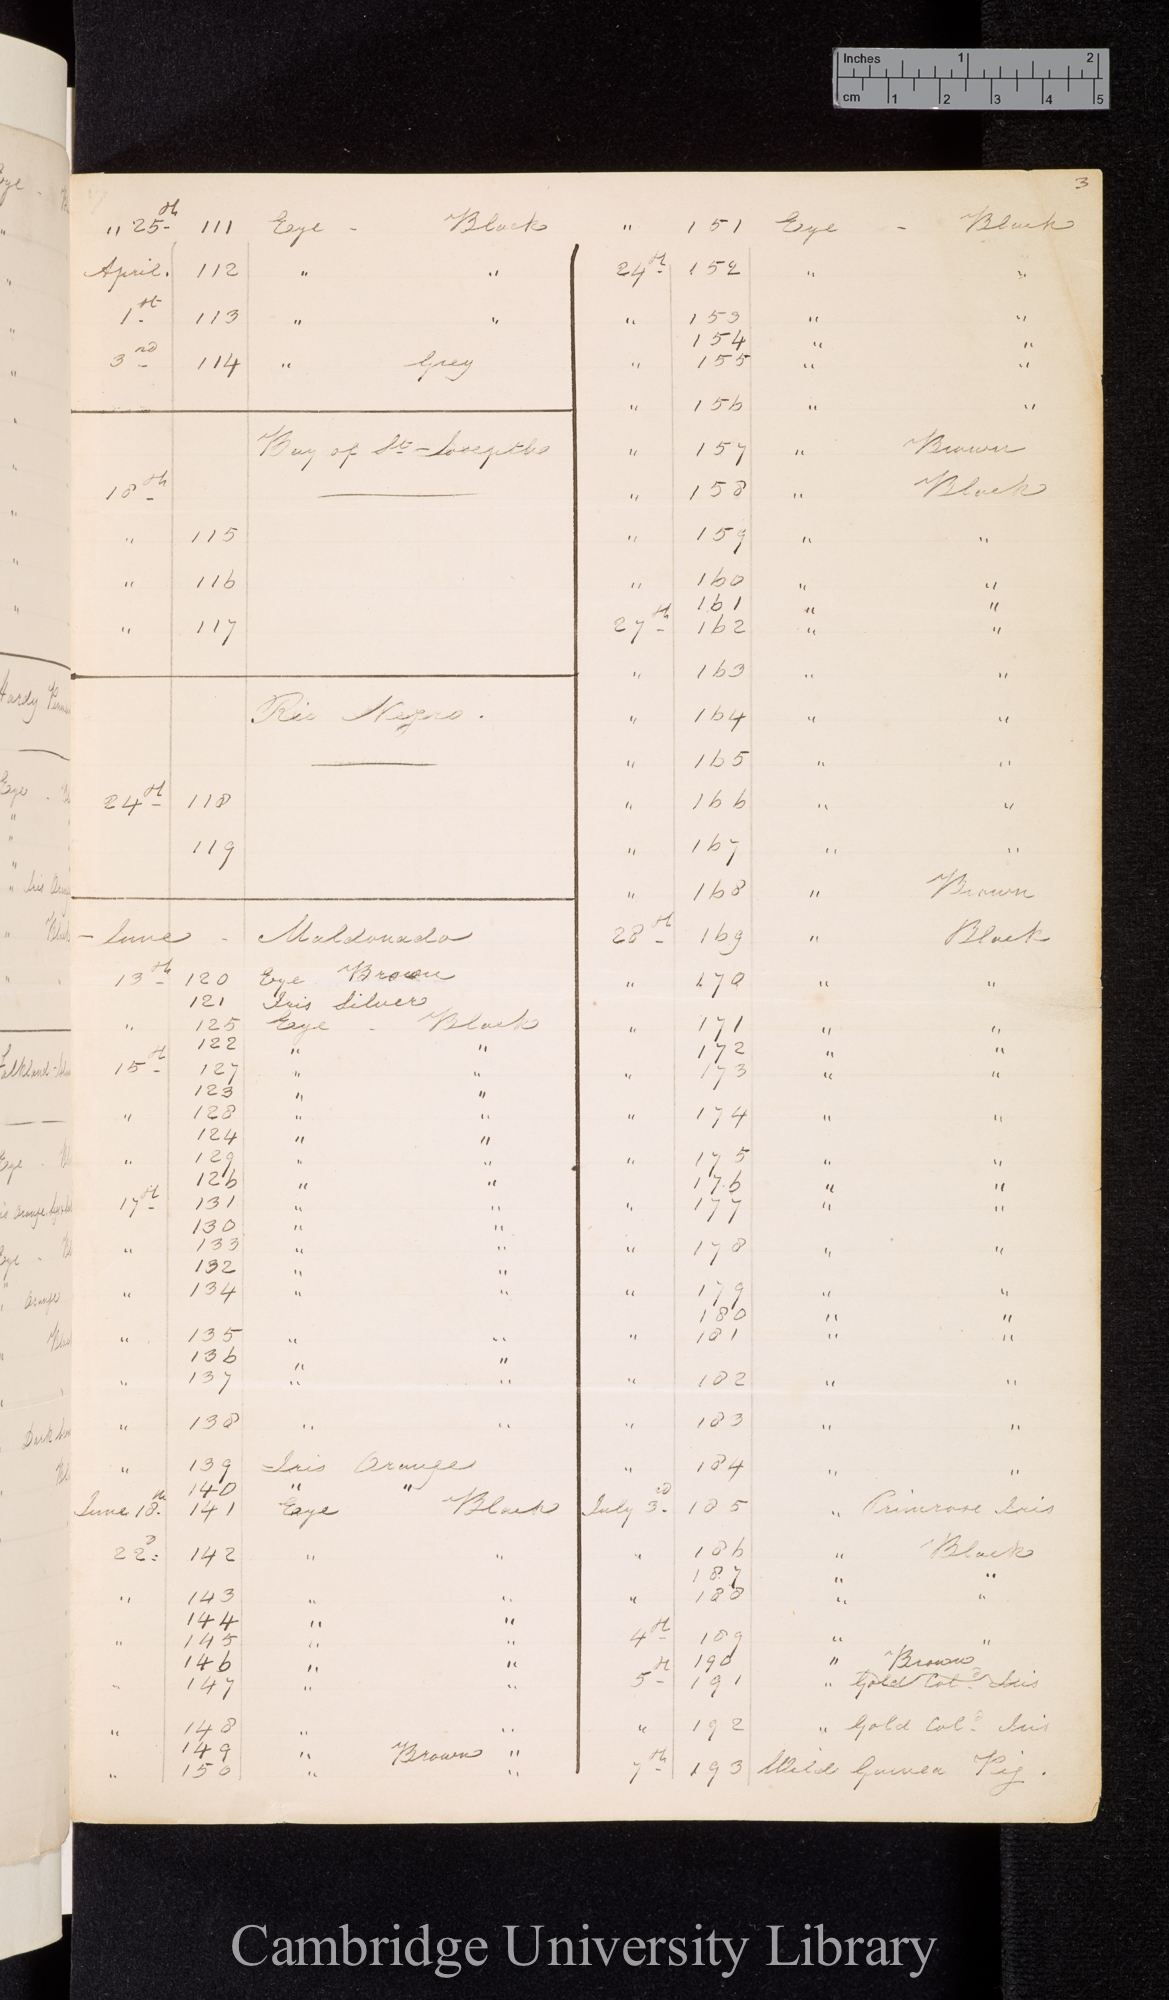 Inches 1 2
cm 1 2 3 4 5
3
" 25th 111 Eye - Black
April. 112 " "
1st 113 " "
3rd 114 " Grey
Bay of St - Josephs
18th
" 115
" 116
" 117
Rio Negro.
24th 118
119
- June - Maldonado
13th 120 Eye Brown
121 Iris Silver
" 125 Eye - Black
122 " "
15th 127 " "
123 " "
" 128 " "
124 " "
" 129 " "
126 " "
17th 131 " "
130 " "
" 133 " "
132 " "
" 134 " "
" 135 " "
136 " "
" 137 " "
" 138 " "
" 139 Iris Orange
140 " "
June 18th 141 Eye Black
22d 142 " "
" 143 " "
144 " "
" 145 " "
146 " "
" 147 " "
" 148 " "
149 " Brown "
" 150 " "
" 151 Eye - Black
24th 152 " "
" 153 " "
154 " "
" 155 " "
" 156 " "
" 157 " Brown
" 158 " Black
" 159 " "
" 160 " "
161 " "
27th 162 " "
" 163 " "
" 164 " "
" 165 " "
" 166 " "
" 167 " "
" 168 " Brown
28th 169 " Black
" 170 " "
" 171 " "
172 " "
" 173 " "
" 174 " "
" 175 " "
176 " "
" 177 " "
" 178 " "
" 179 " "
180 " "
" 181 " "
" 182 " "
" 183 " "
" 184 " "
July 3rd 185 " Primrose Iris
" 186 " Black
187 " "
" 188 " "
4th 189 " "
190 " Brown
5th 191 " Gold Cold Iris
" 192 " Gold Cold Iris
7th 193 Wild Guinea Pig.
Cambridge University Library